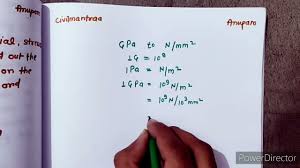 Anupam
Civilmantraa
Anupam
ial, stru
d out the
on the
and
GPa to N/mm²
1G = 10⁹
1Pa = N/m²
1GPa = 10⁹ N/m²
= 10⁹ N/10³mm²
PowerDirector